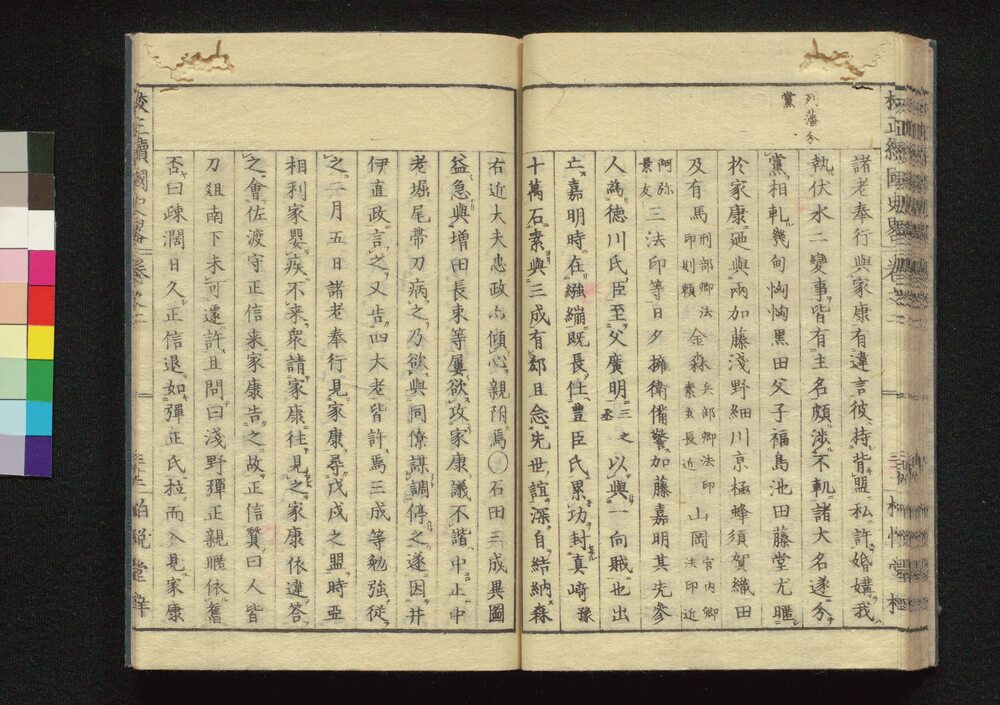 列藩分
黨
諸老奉行與家康有違言彼持背盟私許婚媾我
執伏水二變事皆有主名頗涉不軌諸大名遂分
黨相軋幾甸恟恟黒田父子福島池田藤堂尤暱
於家康廼與兩加藤淺野細川京極蜂須賀織田
及有馬刑部卿法印則頼金森兵部卿法印素玄長近山岡宮内卿法印近
阿弥景友三法印等日夕擁衛備警加藤嘉明其先參
人為徳川氏臣至父廣明三之丞以與一向賊也出
亡嘉明時在繈繃既長仕豊臣氏累功封真﨑豫
十萬石素與三成有郄且念先世誼深自結納森
右近大夫忠政亦傾心親附焉〇石田三成異圖
益急與増田長束等屢欲攻家康議不諧中止中
老堀尾帶刀病之乃欲與同僚謀調停之遂因井
伊直政言之又告四大老皆許焉三成等勉強從
之二月五日諸老奉行見家康尋戊戌之盟時亞
相利家嬰疾不来衆請家康往見之家康依違答
之會佐渡守正信来家康告之故正信賛曰人皆
刀俎南下未可遽許且問曰淺野彈正親暱依舊
否曰疎濶日久正信退如彈正氏拉而入見家康
校正續國史畧
卷之二